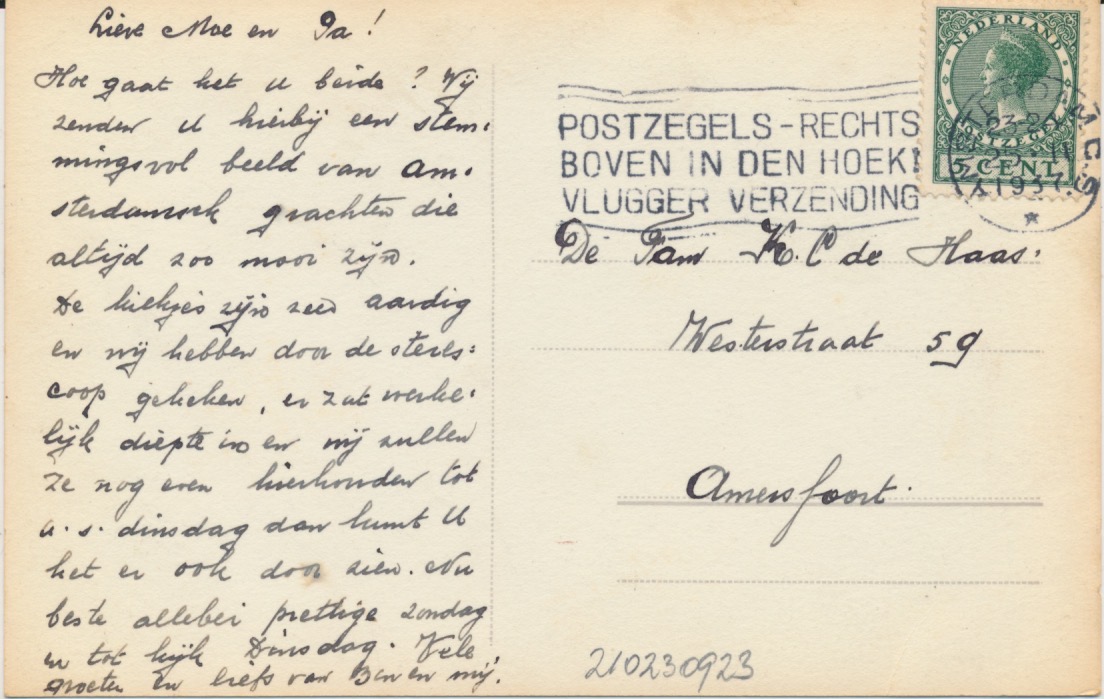 Lieve Moe en Pa!
Hoe gaat het U beide? Wij
zenden U hierbij een stem:
mingsvol beeld van Am:
sterdamsch grachten die
altijd zoo mooi zijn.
De kiekjes zijn zeer aardig
en wij hebben door de steres:
coop gekeken, er zat werke:
lijk diepte in en wij zullen
ze nog even hierhouden tot
a.s. dinsdag dan kunt U
het er ook door zien. Nu
beste allebei prettige zondag
en tot kijk Dinsdag. Vele
groeten en liefs van en mij.
NEDERLAND
POSTZEGEL
5 CENT
1937
POSTZEGELS-RECHTS
BOVEN IN DEN HOEK!
VLUGGER VERZENDING
De Fam K.C de Haas.
Westerstraat 59
Amersfoort.
210230923